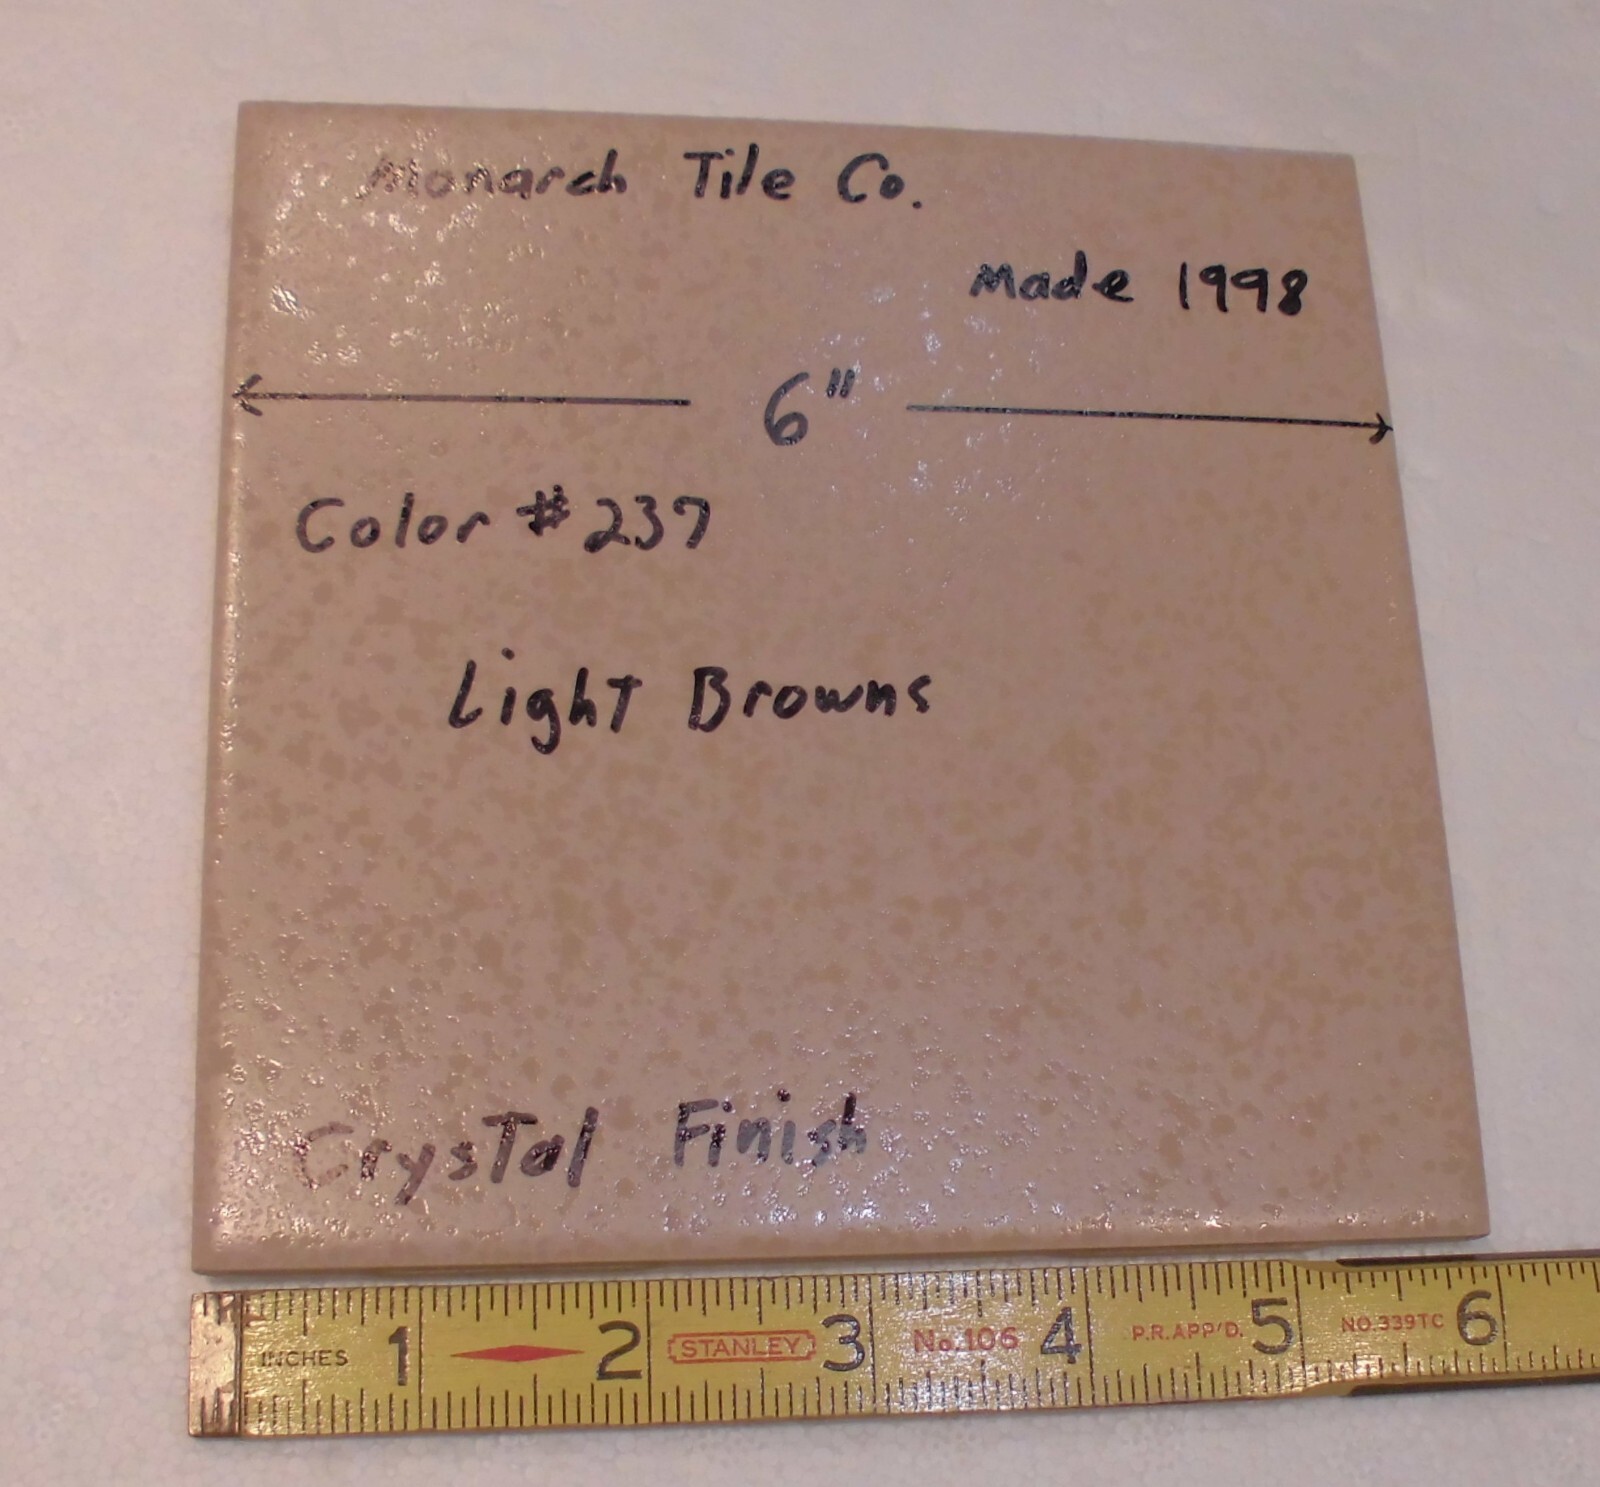 Monarch Tile Co.
Made 1998
6"
Color #237
Light Browns
Crystal Finish
INCHES 1 2 STANLEY 3 No.106 4 P.R.APP'D. 5 NO.339TC 6